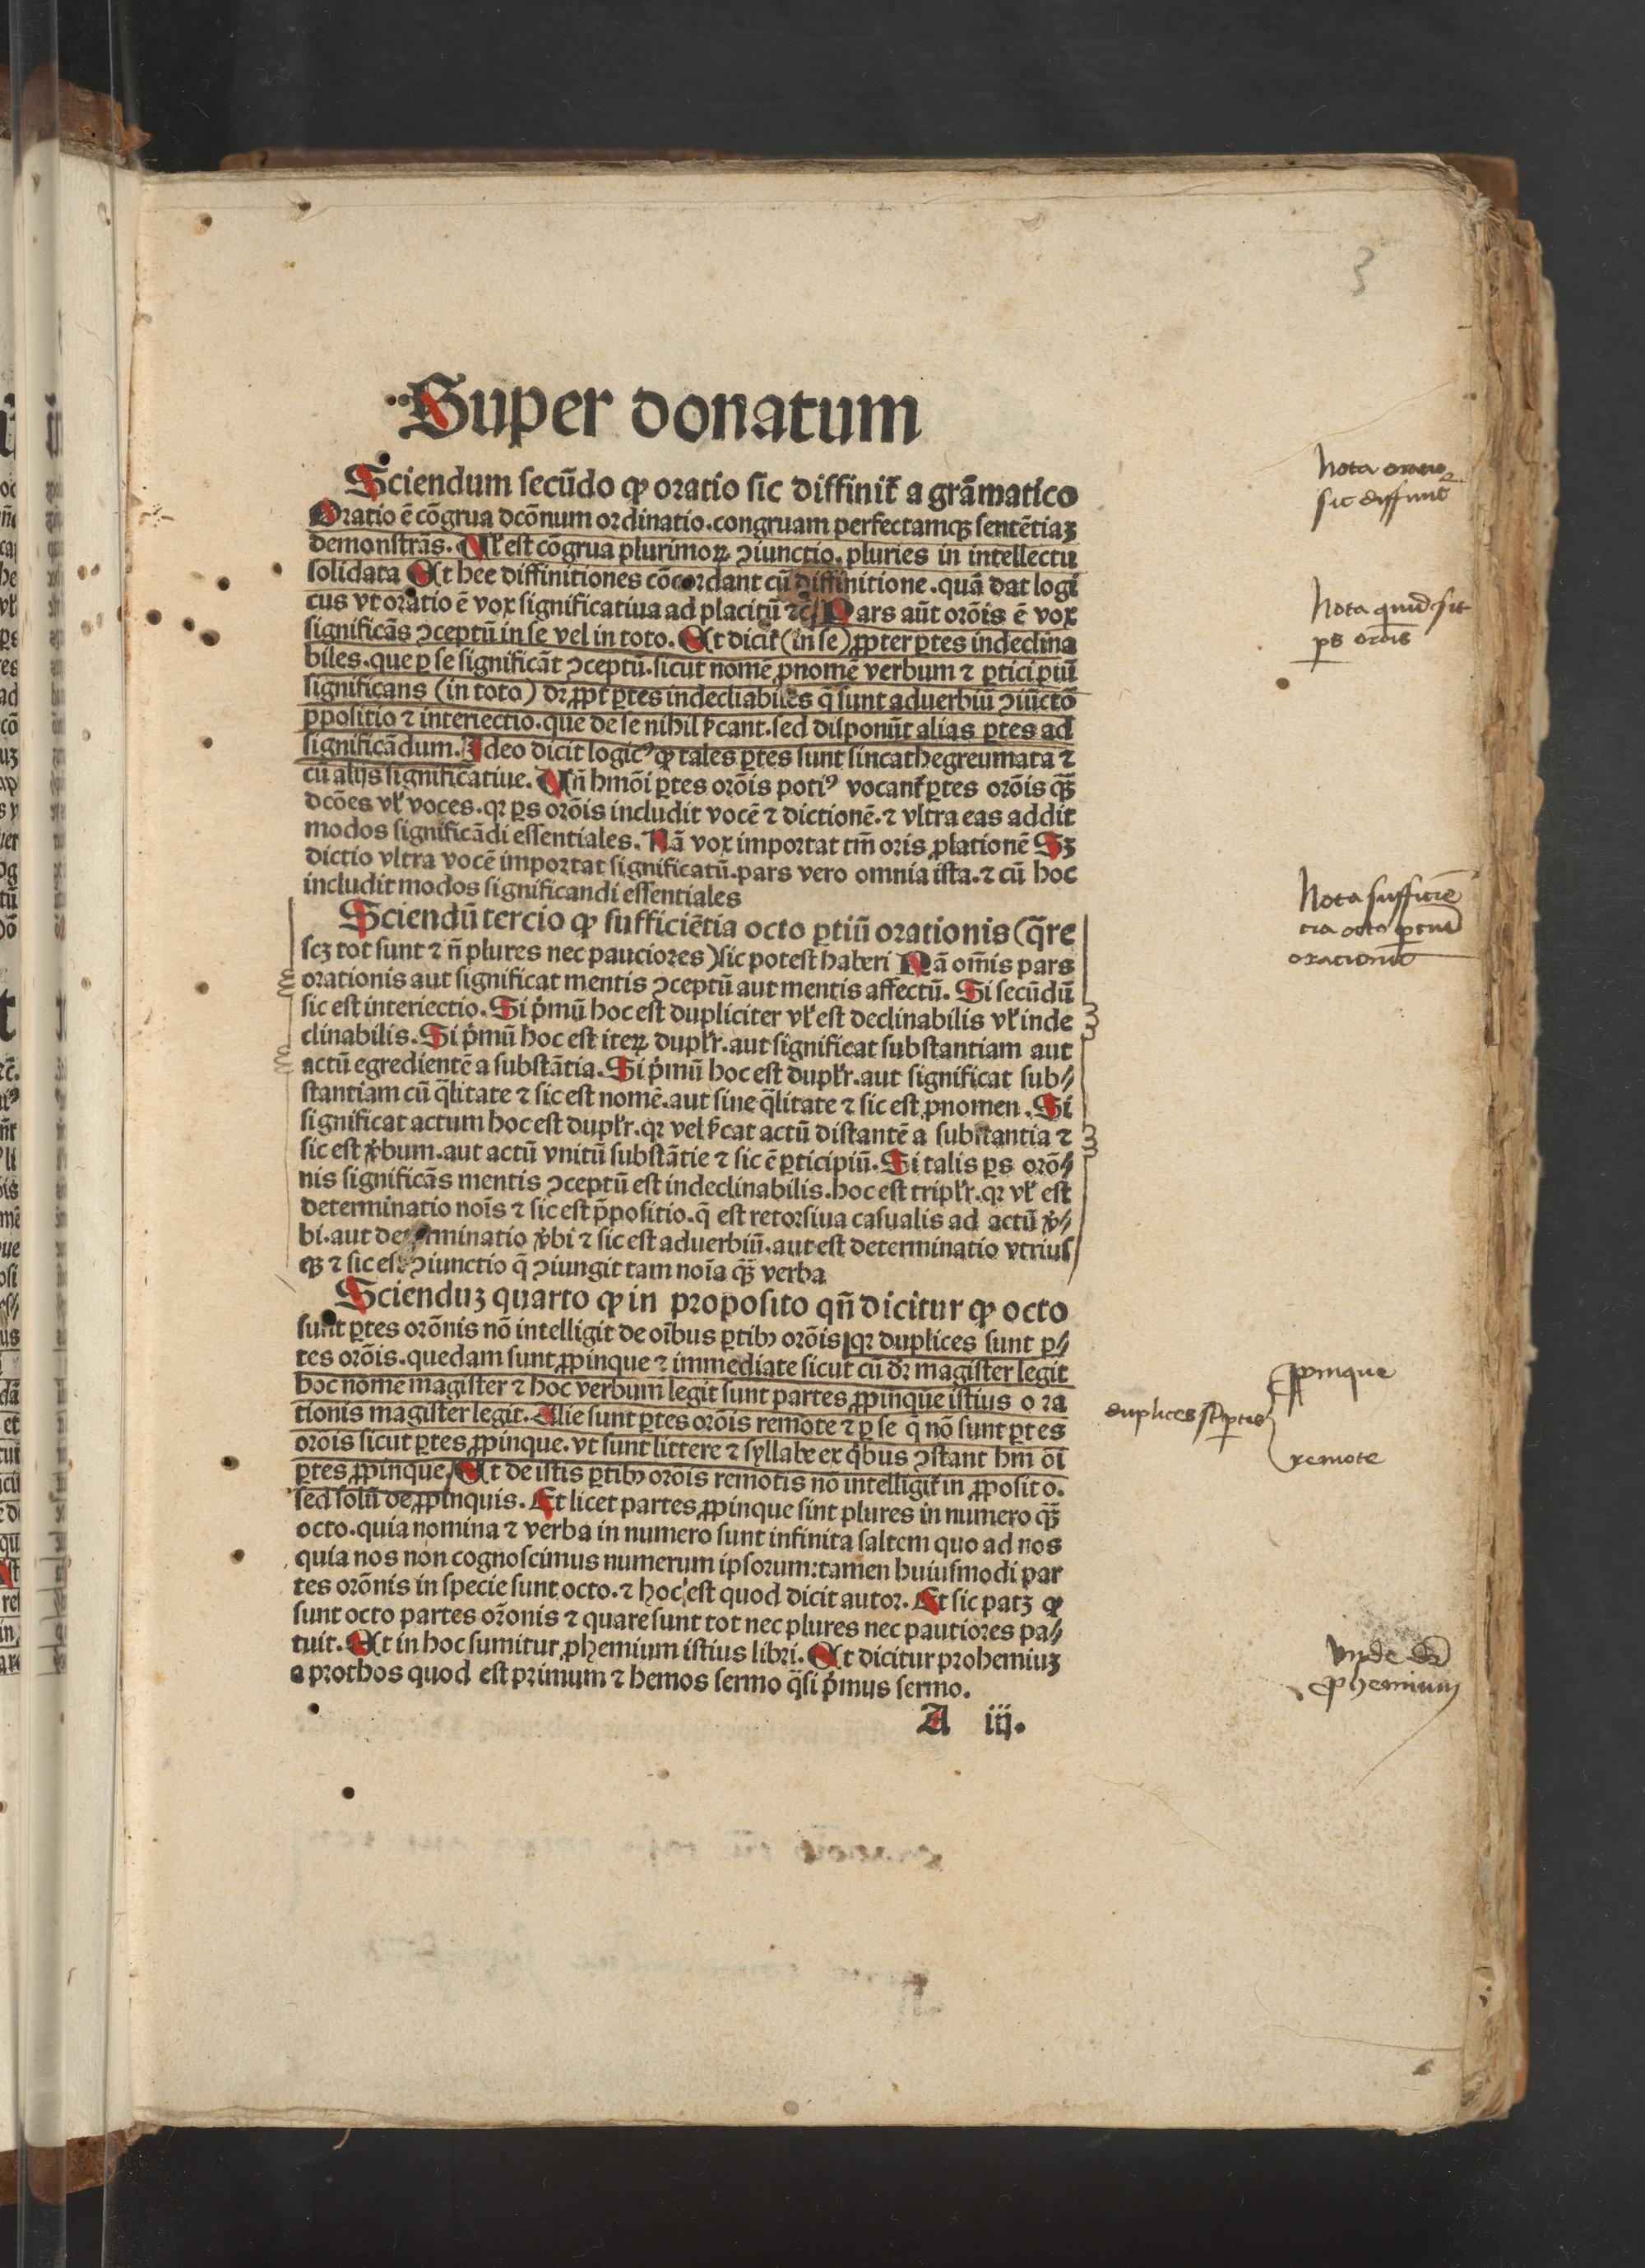 3
Super donatum
Sciendum secūdo ꝙ oratio sic diffinit᷑ a grāmatico
Oratio ē cōgrua dcōnum ordinatio. congruam perfectamqꝫ sentētiaꝫ
demonstrās. Ul᷑ est cōgrua plurimoꝝ ↄiunctio. pluries in intellectu
solidata Et hee diffinitiones cōcordant cū diffinitione. quā dat logi
cus vt oratio ē vox significatiua ad placitū ⁊c̄ Pars aūt orōis ē vox
significās ↄceptū in se vel in toto. Et dicit᷑ (in se) ꝓpter ꝑtes indeclina
biles. que ꝑ se significāt ↄceptū. sicut nomē ꝓnomē verbum ⁊ ꝑticipiū
significans (in toto) dr̄ ꝓpt᷑ ꝑtes indecliabiles q̄ sunt aduerbiū ↄiūctō
p̄positio ⁊ interiectio. que de se nihil s̄cant. sed disponūt alias ꝑtes ad
significādum. Ideo dicit logicꝰ ꝙ tales ꝑtes sunt sincathegreumata ⁊
cū alijs significatiue. Un̄ hmōi ꝑtes orōis potiꝰ vocant᷑ ꝑtes orōis qꝫ̄
dcōes vl᷑ voces. qꝛ ꝑs orōis includit vocē ⁊ dictionē. ⁊ vltra eas addit
modos significādi essentiales. Nā vox importat tm̄ oris ꝓlationē Sꝫ
dictio vltra vocē importat significatū. pars vero omnia ista. ⁊ cū hoc
includit modos significandi essentiales
Sciendū tercio ꝙ sufficiētia octo ꝑtiū orationis (q̄re
scꝫ tot sunt ⁊ n̄ plures nec pauciores) sic potest haberi Nā om̄is pars
orationis aut significat mentis ↄceptū aut mentis affectū. Si secūdū
sic est interiectio. Si p̄mū hoc est dupliciter vl᷑ est declinabilis vl᷑ inde
clinabilis. Si p̄mū hoc est iteꝝ dupl᷑r. aut significat substantiam aut
actū egredientē a substātia. Si p̄mū hoc est dupl᷑r. aut significat sub⸗
stantiam cū q̄litate ⁊ sic est nomē. aut sine q̄litate ⁊ sic est ꝓnomen. Si
significat actum hoc est dupl᷑r. qꝛ vel s̄cat actū distantē a substantia ⁊
sic est v̄bum. aut actū vnitū substātie ⁊ sic ē ꝑticipiū. Si talis ꝑs orō⸗
nis significās mentis ↄceptū est indeclinabilis. hoc est tripl᷑r. qꝛ vl᷑ est
determinatio nois̄ ⁊ sic est p̄positio. q̄ est retorsiua casualis ad actū v̄⸗
bi. aut determinatio v̄bi ⁊ sic est aduerbiū. aut est determinatio vtrius
qꝫ ⁊ sic est ↄiunctio q̄ ↄiungit tam noīa qꝫ̄ verba
Scienduꝫ quarto ꝙ in proposito qn̄ dicitur ꝙ octo
sunt ꝑtes orōnis nō intelligit de oībus ꝑtibꝫ orōis qꝛ duplices sunt ꝑ⸗
tes orōis. quedam sunt ꝓpinque ⁊ immediate sicut cū dr̄ magister legit
hoc nomē magister ⁊ hoc verbum legit sunt partes ꝓpinque istius ora
tionis magister legit. Alie sunt ꝑtes orōis remote ⁊ ꝑ se q̄ nō sunt ꝑtes
orōis sicut ꝑtes ꝓpinque. vt sunt littere ⁊ syllabe ex q̄bus ↄstant hm̄ōi
ꝑtes ꝓpinque. Et de istis ꝑtibꝫ orōis remotis nō intelligit᷑ in ꝓposito.
sed solū de ꝓpinquis. Et licet partes ꝓpinque sint plures in numero qꝫ̄
octo. quia nomina ⁊ verba in numero sunt infinita saltem quo ad nos
quia nos non cognoscimus numerum ipsorum: tamen huiusmodi par
tes orōnis in specie sunt octo. ⁊ hoc est quod dicit autor. Et sic patꝫ ꝙ
sunt octo partes or̄onis ⁊ quare sunt tot nec plures nec pautiores pa⸗
tuit. Et in hoc sumitur ꝓhemium istius libri. Et dicitur prohemiuꝫ
a prothos quod est primum ⁊ hemos sermo q̄si p̄mus sermo.
A iij.
Nota oratio
sic diffinit᷑
Nota quid sit
ps orōis
Nota sufficiē
tia octo ꝑtiū
orationis
duplices sūt ꝑtes
ꝓpinque
remote
Vnde dr̄
ꝓhemium